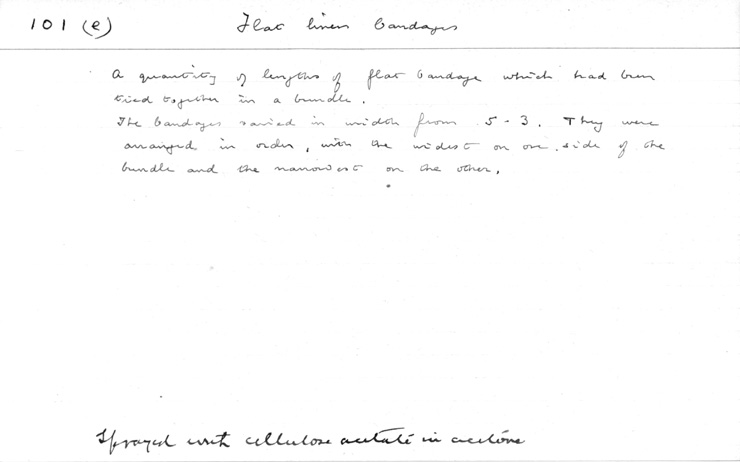 101 (e) Flat linen bandages
A quantity of lengths of flat bandage which had been
tied together in a bundle.
The bandages varied in width from 5 - 3. They were
arranged in order, with the widest on one side of the
bundle and the narrowest on the other.
Sprayed with cellulose acetate in acetone